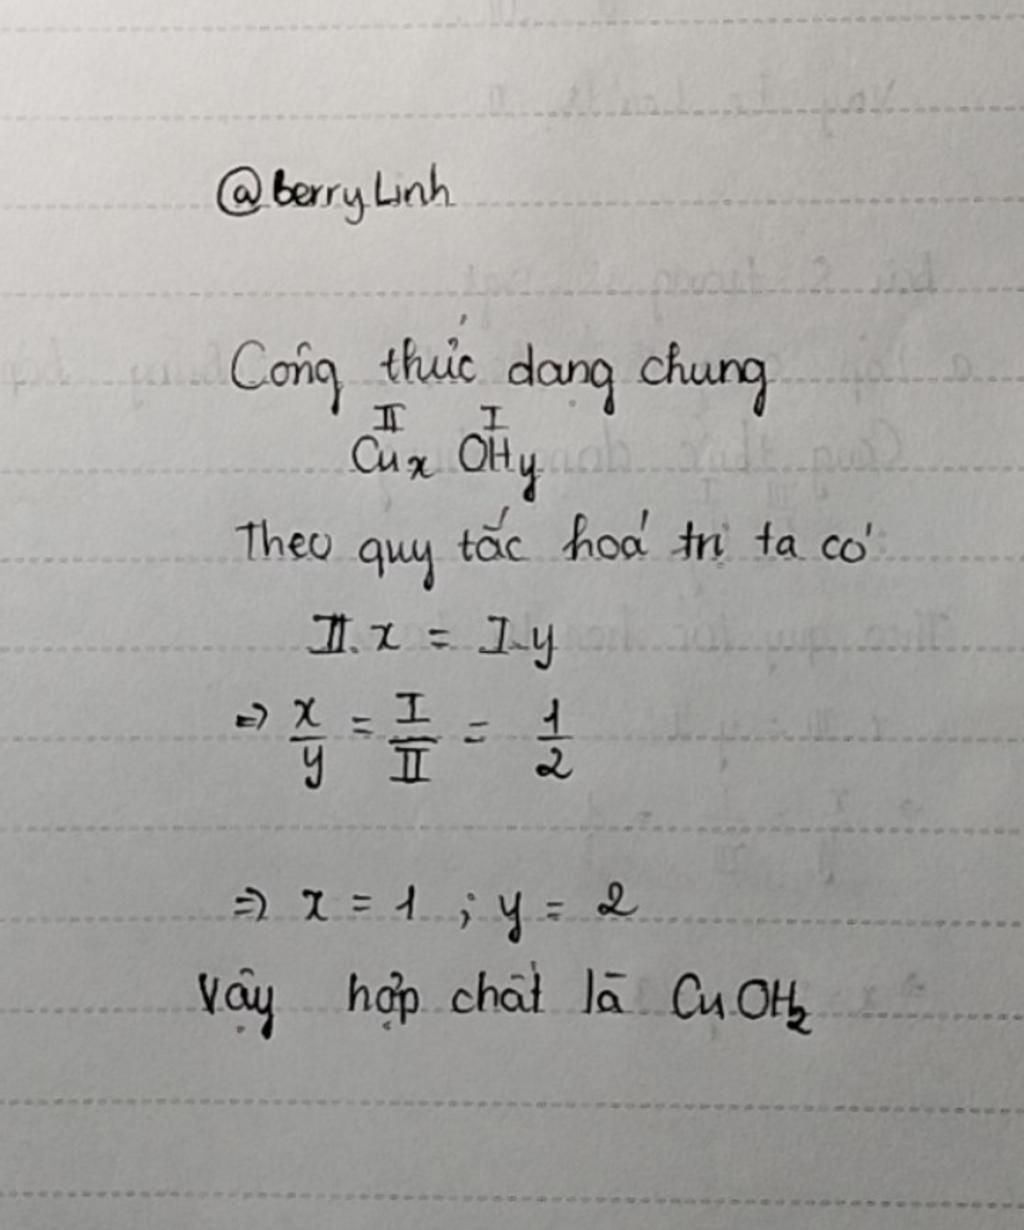 @berryLinh
Công thức dạng chung
II I
Cux OHy
Theo quy tắc hoá trị ta có
II.x = I.y
=> x/y = I/II = 1/2
=> x = 1 ; y = 2
Vậy hợp chất là CuOH2